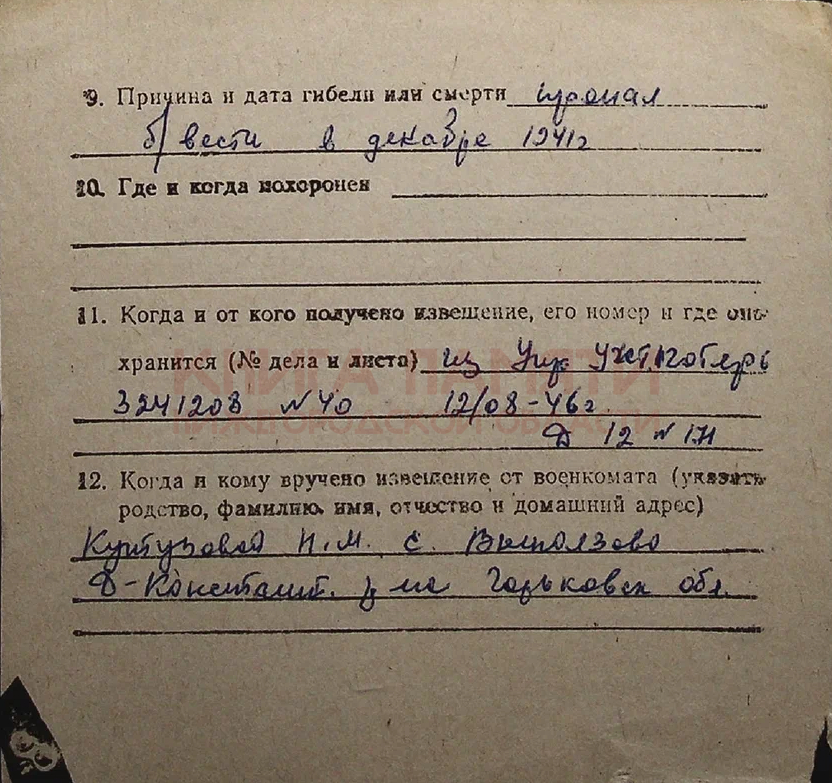 9. Причина и дата гибели или смерти пропал
б/вести в декабре 1941г
10. Где и когда похоронен
11. Когда и от кого получено извещение, его номер и где оно
хранится (№ дела и листа) из Упр
N 40 12/08-46г.
Д 12 N 171
КНИГА ПАМЯТИ
НИЖЕГОРОДСКОЙ ОБЛАСТИ
12. Когда и кому вручено извещение от военкомата (указать
родство, фамилию, имя, отчество и домашний адрес)
Кутузовой Н.М. с. Выползово
Д-Константи. р-на Горьковск обл.